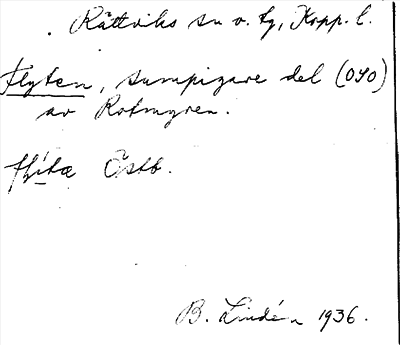 Rättviks sn o. tg, Kopp. l.
Flyten, sumpigare del (OSO)
av Rotmyren.
Östb.
B. Lindén 1936.